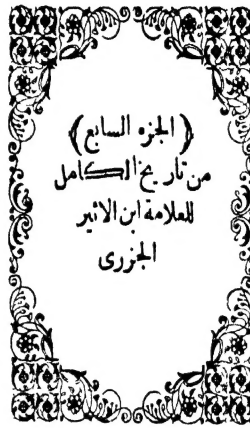 ﴿الجزء السابع﴾
من تاريخ الكامل
للعلامة ابن الاثير
الجزرى